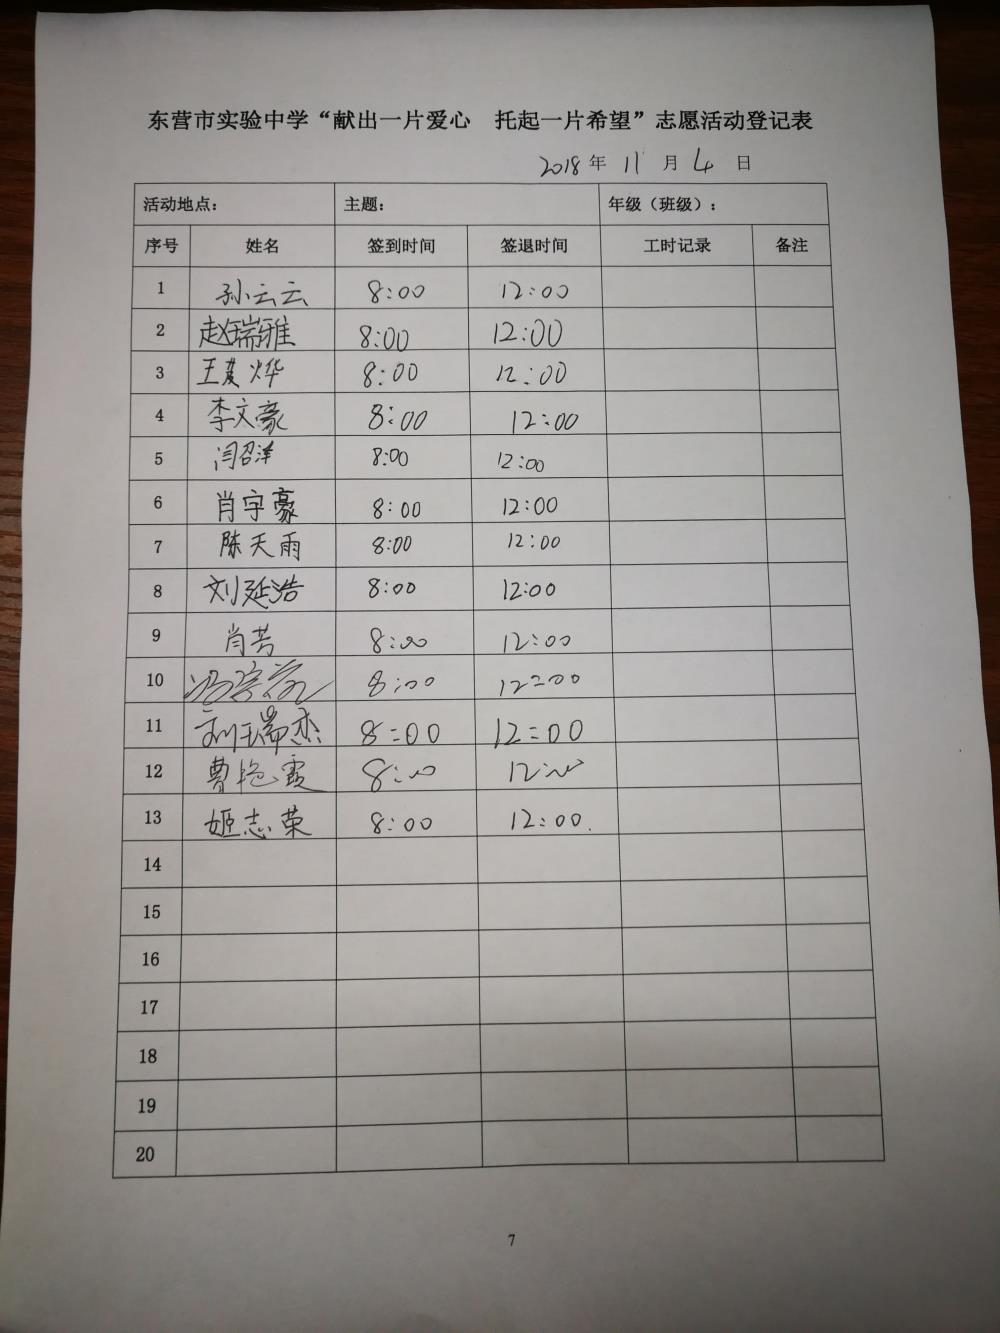 东营市实验中学“献出一片爱心 托起一片希望”志愿活动登记表
2018 年 11 月 4 日
活动地点： 主题： 年级（班级）：
序号 姓名 签到时间 签退时间 工时记录 备注
1 孙云云 8:00 12:00
2 赵瑞雅 8:00 12:00
3 王 烨 8:00 12:00
4 李文豪 8:00 12:00
5 闫召洋 8:00 12:00
6 肖宇豪 8:00 12:00
7 陈天雨 8:00 12:00
8 刘延浩 8:00 12:00
9 肖芳 8:00 12:00
10 8:00 12:00
11 刘瑞杰 8:00 12:00
12 曹艳霞 8:00 12:00
13 姬志荣 8:00 12:00.
14
15
16
17
18
19
20
7